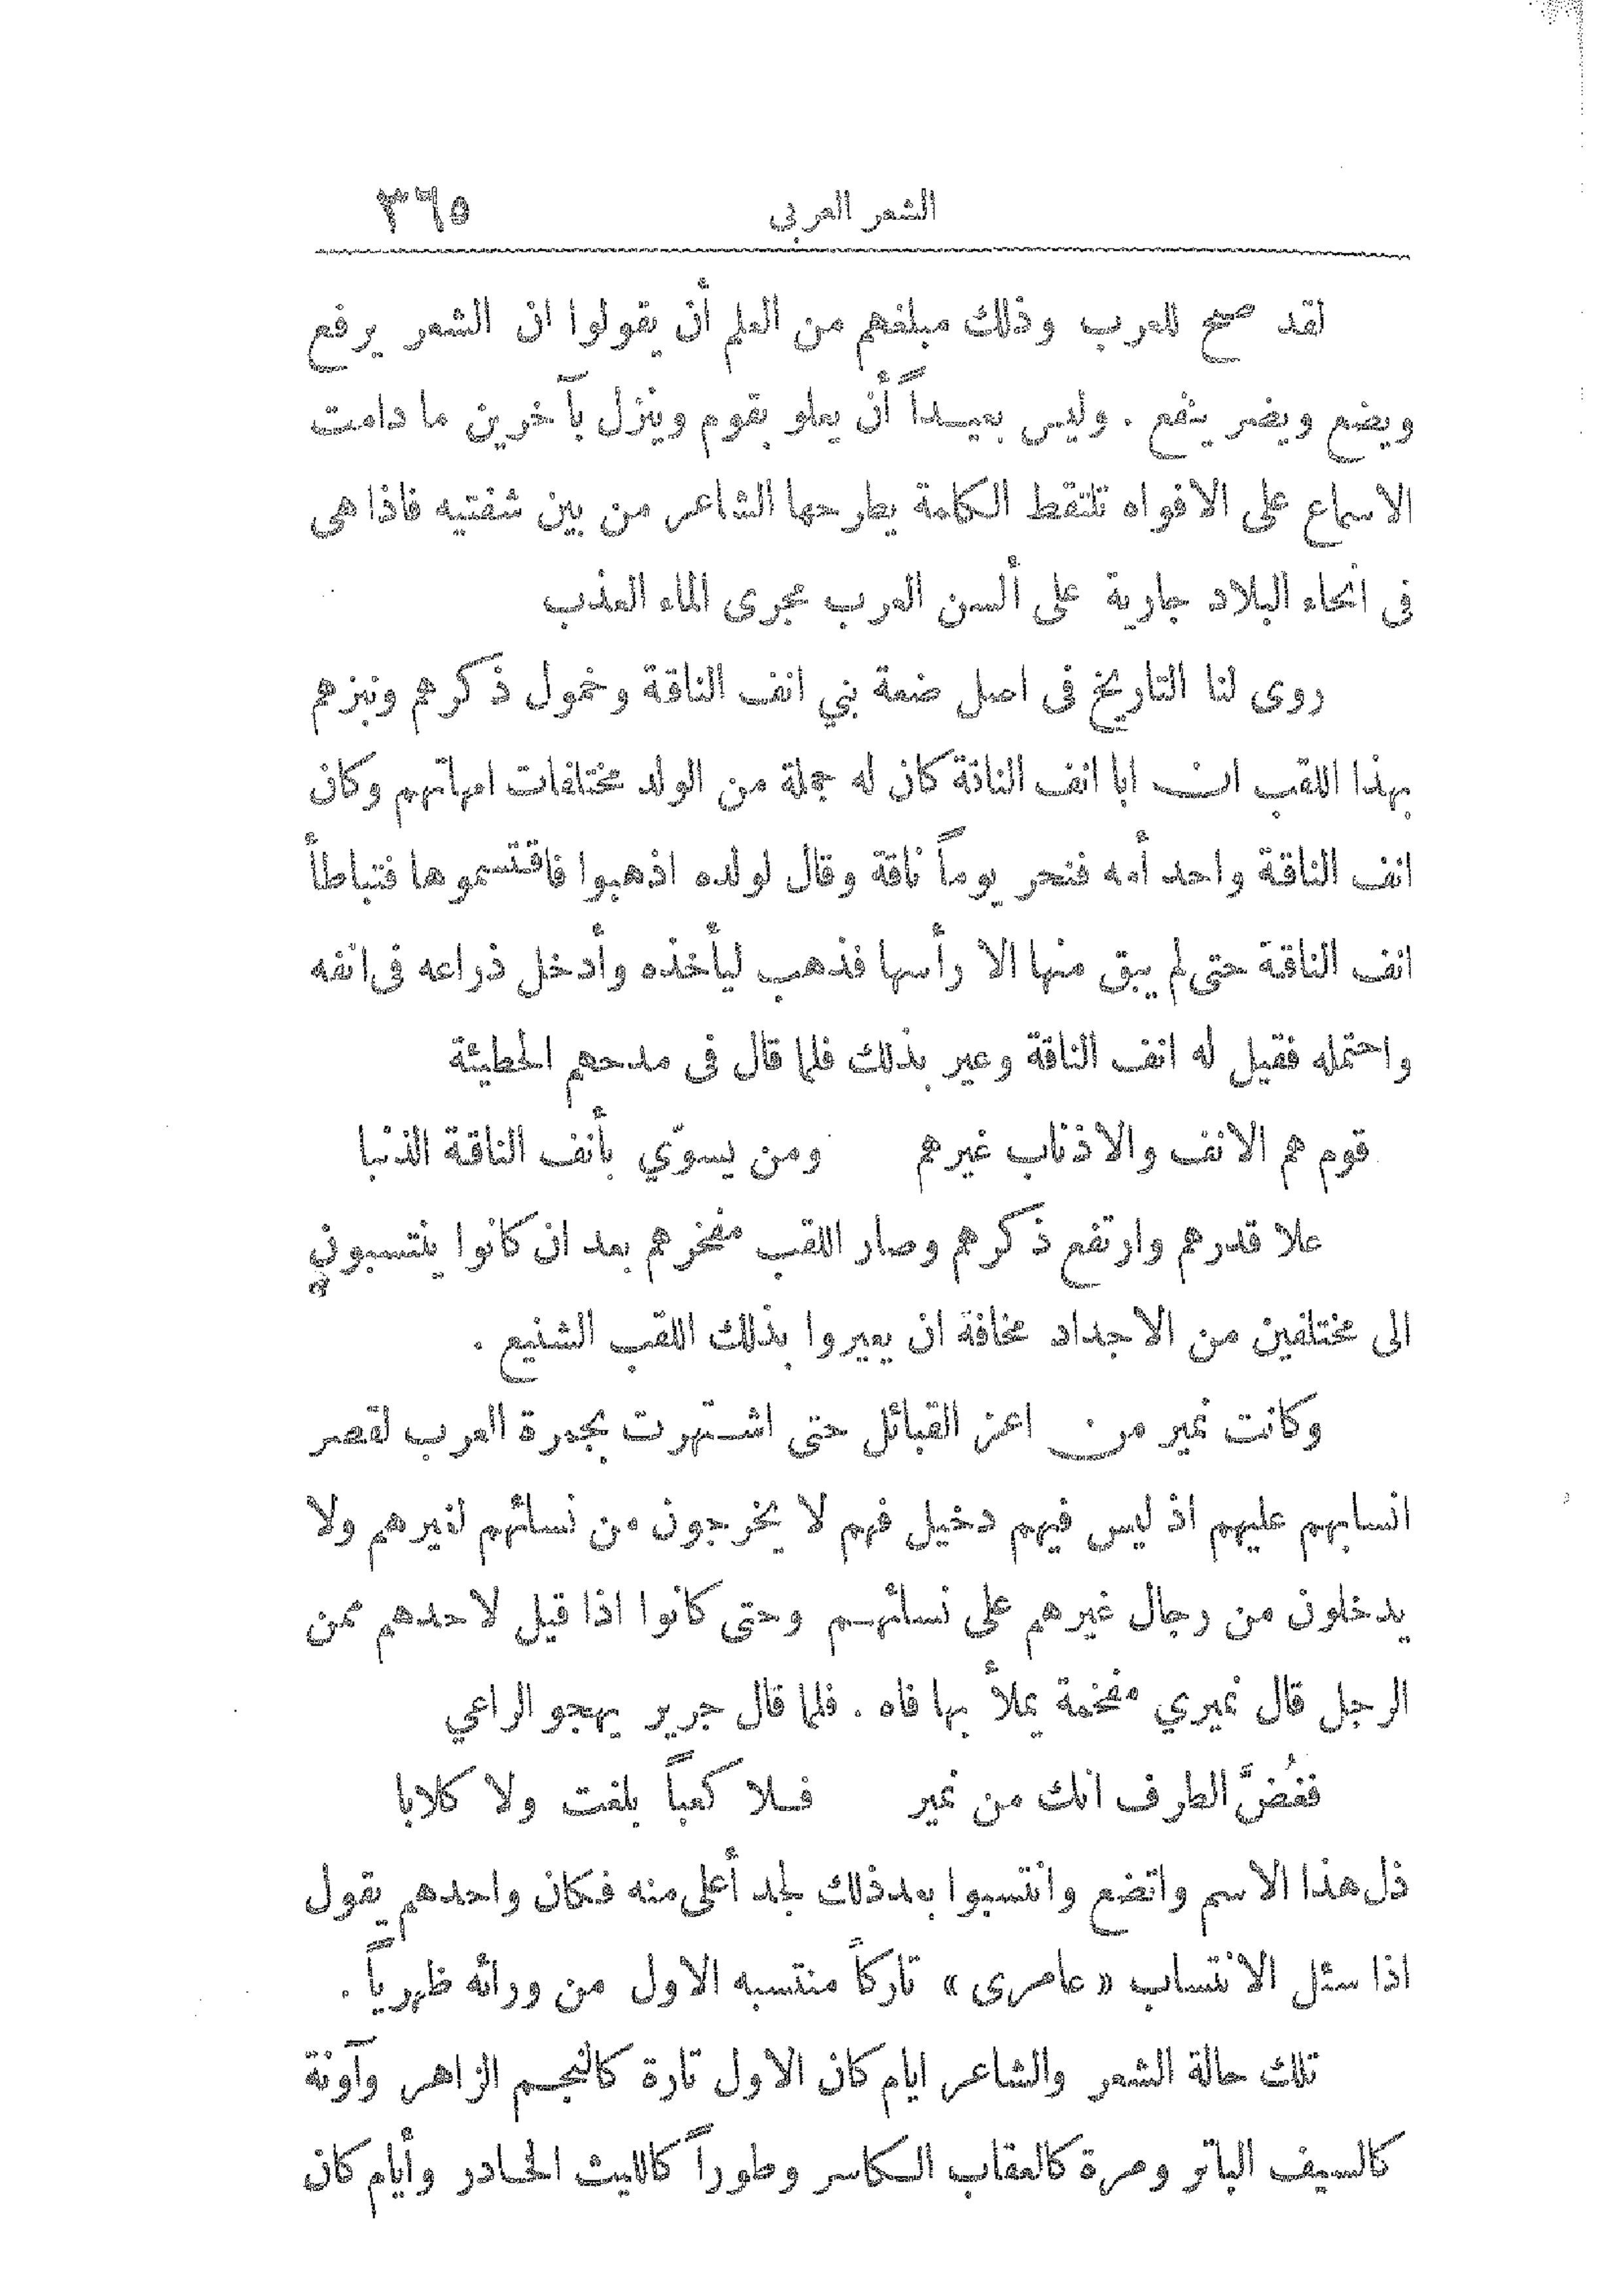 الشعر العربى ٣٦٥
لقد صح للعرب وذلك مبلغهم من العلم أن يقولوا ان الشعر يرفع
ويضع ويضر ينفع . وليس بعيداً أن يعلو بقوم وينزل بآخرين ما دامت
الاسماع على الافواه تلتقط الكلمة يطرحها الشاعر من بين شفتيه فاذا هى
فى انحاء البلاد جارية على ألسن العرب مجرى الماء العذب
روى لنا التاريخ فى اصل ضعة بني انف الناقة وخمول ذكرهم ونبزهم
بهذا اللقب ان ابا انف الناقة كان له جملة من الولد مختلفات امهاتهم وكان
انف الناقة واحد أمه فنحر يوماً ناقة وقال لولده اذهبوا فاقتسموها فتباطأ
انف الناقة حتى لم يبق منها الا رأسها فذهب ليأخذه وأدخل ذراعه فى انفه
واحتمله فقيل له انف الناقة وعير بذلك فلما قال فى مدحهم الحطيئة
قوم هم الانف والاذناب غيرهم ومن يسوّي بأنف الناقة الذنبا
علا قدرهم وارتفع ذكرهم وصار اللقب مفخرهم بعد ان كانوا ينتسبون
الى مختلفين من الاجداد مخافة ان يعيروا بذلك اللقب الشنيع .
وكانت نمير من اعز القبائل حتى اشتهرت بجمرة العرب لقصر
انسابهم عليهم اذ ليس فيهم دخيل فهم لا يخرجون من نسائهم لغيرهم ولا
يدخلون من رجال غيرهم على نسائهم وحتى كانوا اذا قيل لاحدهم ممن
الرجل قال نميري مفخمة يملأ بها فاه . فلما قال جرير يهجو الراعي
فغُضَّ الطرف انك من نمير فلا كعباً بلغت ولا كلابا
ذل هذا الاسم واتضع وانتسبوا بعد ذلك لجد أعلى منه فكان واحدهم يقول
اذا سئل الانتساب «عامرى» تاركاً منتسبه الاول من ورائه ظهرياً .
تلك حالة الشعر والشاعر ايام كان الاول تارة كالنجم الزاهر وآونة
كالسيف الباتر ومرة كالعقاب الكاسر وطوراً كالليث الخادر وأيام كان